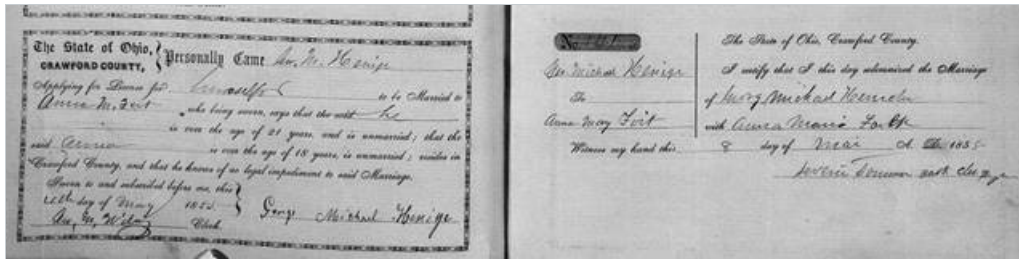 The State of Ohio,
CRAWFORD COUNTY,
Personally Came Geo. M. Henige
Applying for License for himself to be Married to
Anna M. Foit who being sworn, says that the said he
is over the age of 21 years, and is unmarried; that the
said Anna is over the age of 18 years, is unmarried; resides in
Crawford County, and that he knows of no legal impediment to said Marriage.
Sworn to and subscribed before me, this
day of May 1855
Clerk.
George Michael Henige
No.
Geo. Michael Henige
To
Anna May Foit
The State of Ohio, Crawford County.
I certify that I this day solemnized the Marriage
of Georg Michael
with Anna Maria
Witness my hand this 8 day of Mai A. D. 185